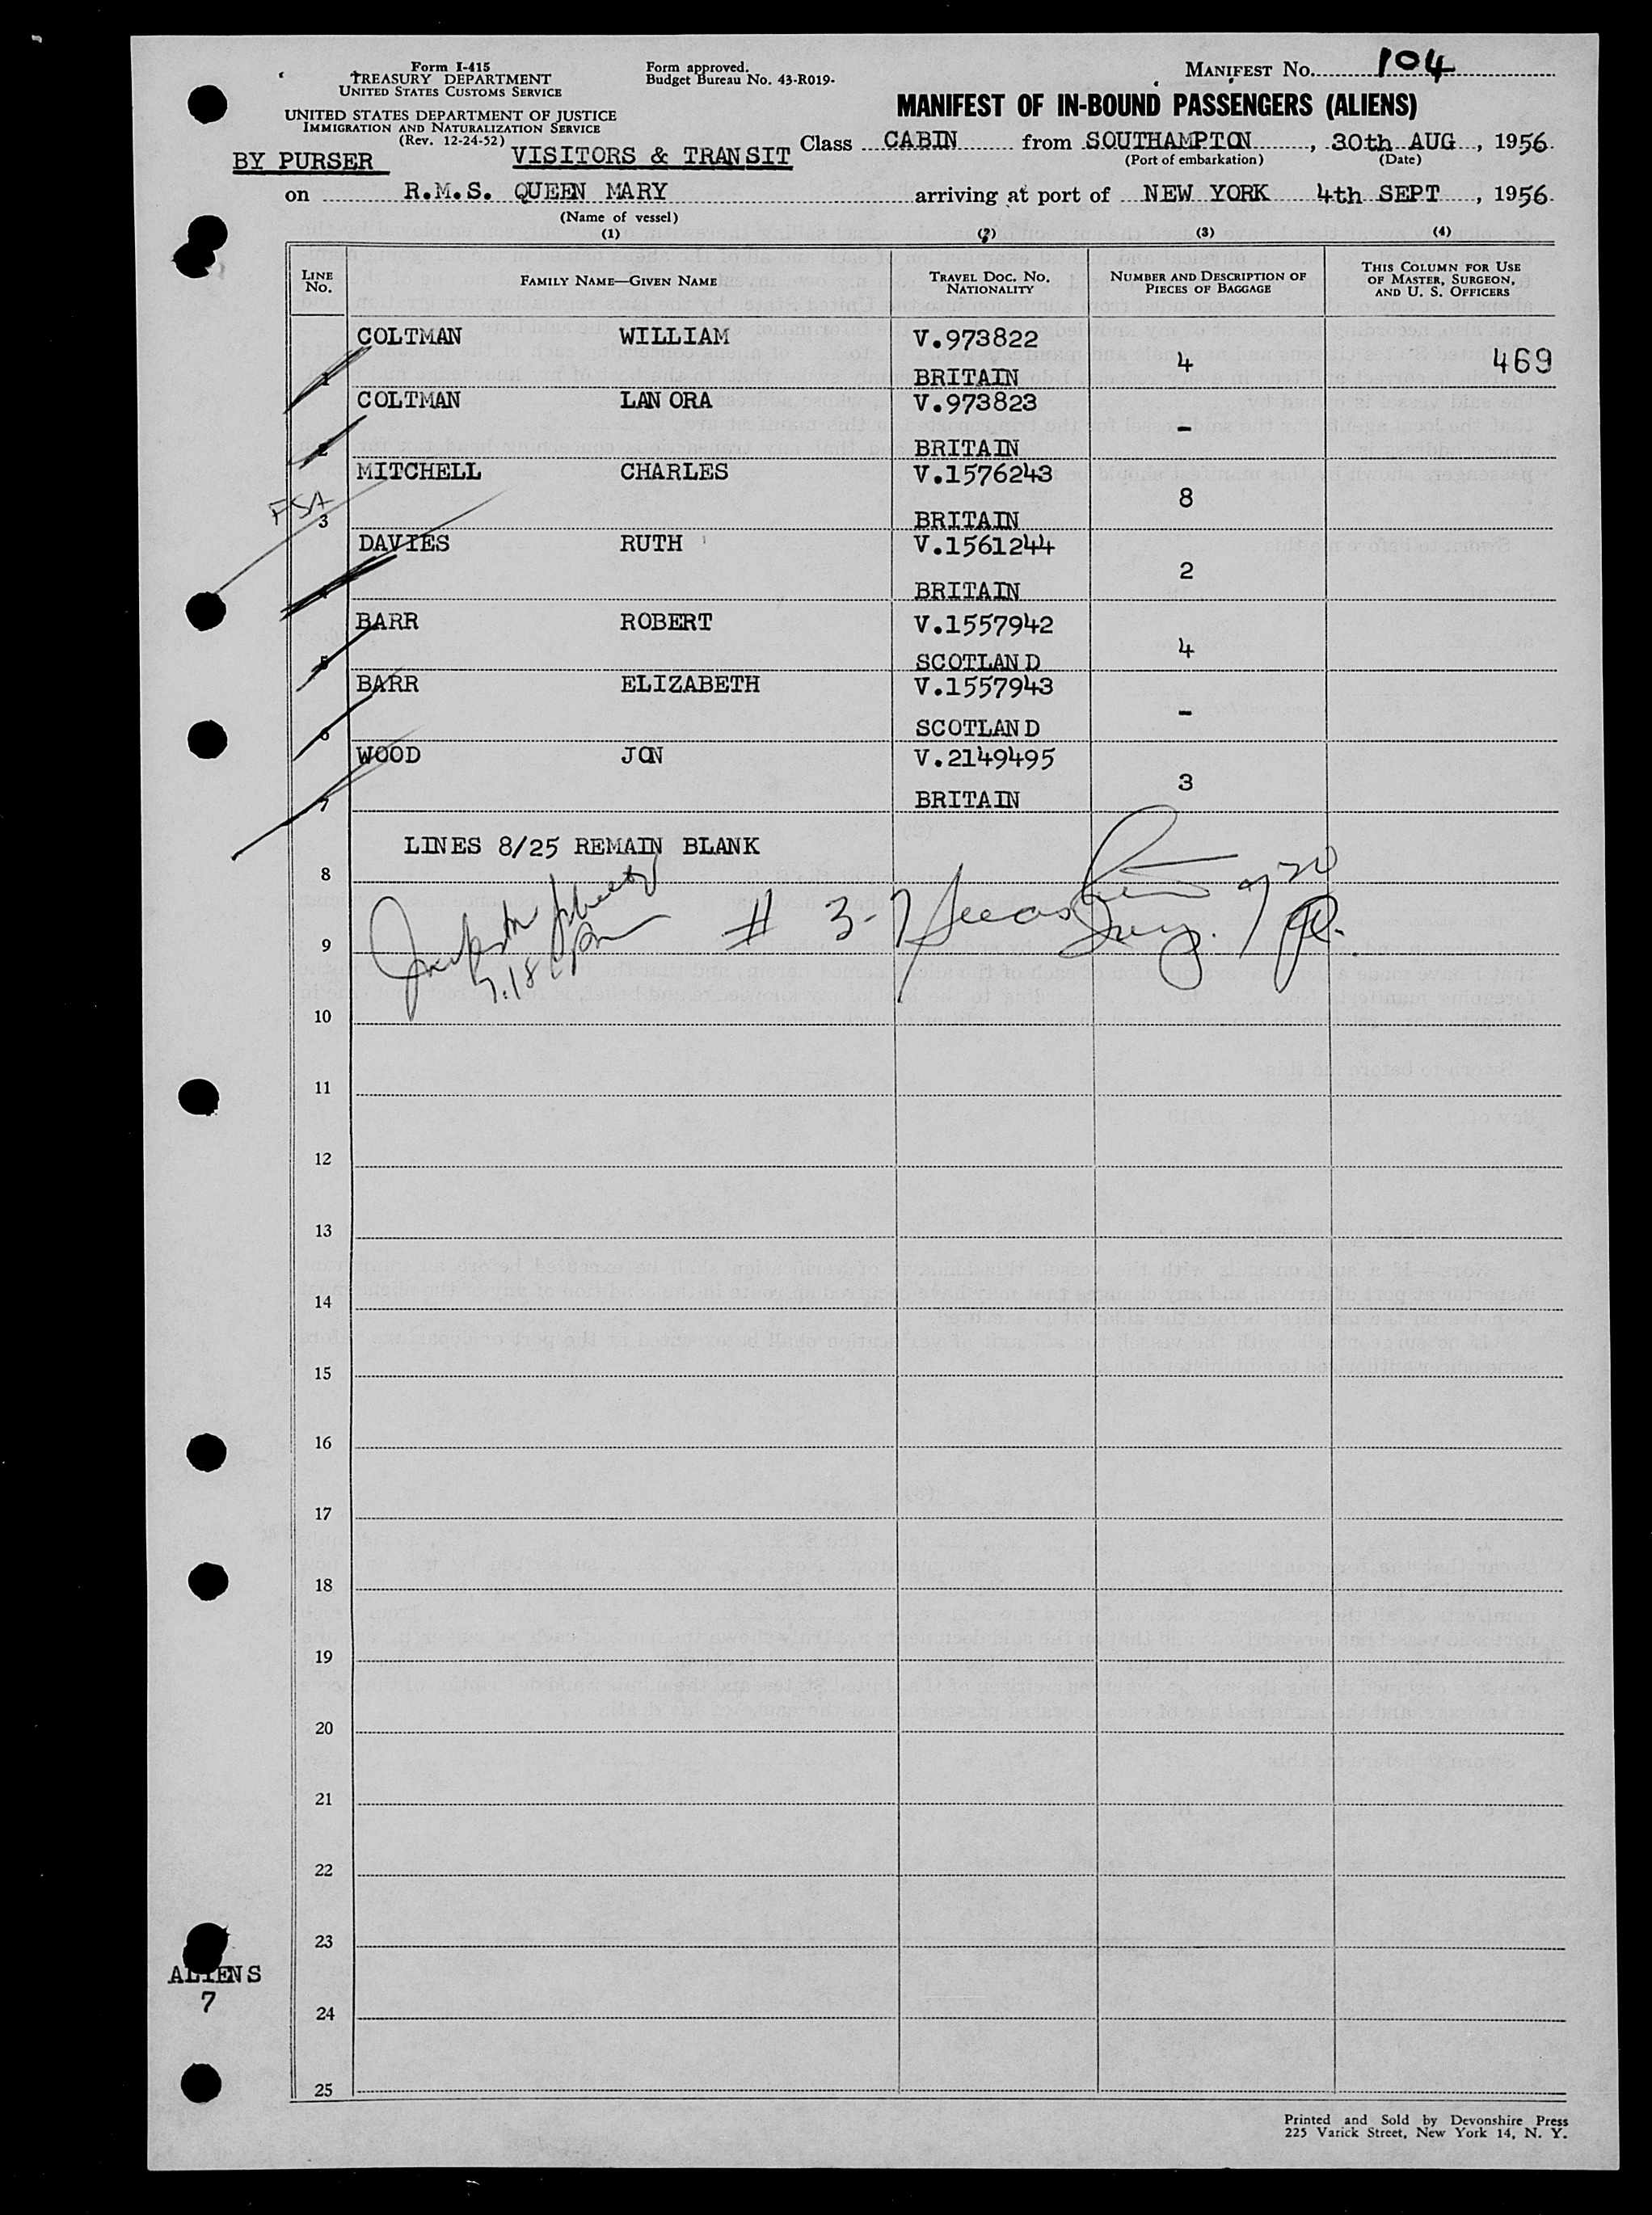 Form I-415
TREASURY DEPARTMENT
UNITED STATES CUSTOMS SERVICE
UNITED STATES DEPARTMENT OF JUSTICE
IMMIGRATION AND NATURALIZATION SERVICE
(Rev. 12-24-52)
Form approved.
Budget Bureau No. 43-R019-
MANIFEST No. 104
MANIFEST OF IN-BOUND PASSENGERS (ALIENS)
BY PURSER VISITORS & TRANSIT Class CABIN from SOUTHAMPTON, 30th AUG, 1956.
(Port of embarkation) (Date)
on R.M.S. QUEEN MARY arriving at port of NEW YORK 4th SEPT, 1956.
(Name of vessel)
(1) (2) (3) (4)
LINE No. FAMILY NAME—GIVEN NAME TRAVEL DOC. NO. NATIONALITY NUMBER AND DESCRIPTION OF PIECES OF BAGGAGE THIS COLUMN FOR USE OF MASTER, SURGEON, AND U. S. OFFICERS
COLTMAN WILLIAM V.973822
1 BRITAIN 4 469
COLTMAN LANORA V.973823
2 BRITAIN -
MITCHELL CHARLES V.1576243
FSA 3 BRITAIN 8
DAVIES RUTH V.1561244
4 BRITAIN 2
BARR ROBERT V.1557942
5 SCOTLAND 4
BARR ELIZABETH V.1557943
6 SCOTLAND -
WOOD JON V.2149495
7 BRITAIN 3
LINES 8/25 REMAIN BLANK
8
# 3-7
9
10
11
12
13
14
15
16
17
18
19
20
21
22
23
ALIENS
7
24
25
Printed and Sold by Devonshire Press
225 Varick Street, New York 14, N. Y.